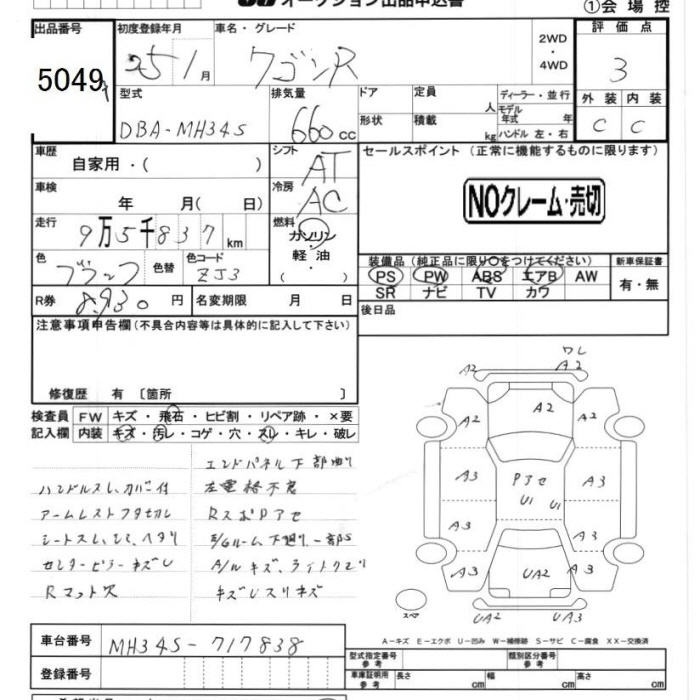 オークション出品申込書
①会場控
出品番号 初度登録年月 車名・グレード 評価点
5049 25/1月 ワゴンR 2WD・4WD 3
型式 排気量 ドア 定員 人 ディーラー・並行 外装 内装
DBA-MH34S 660cc 形状 積載 kg モデル年式 年 ハンドル 左・右 C C
車歴 自家用・( ) シフト AT セールスポイント (正常に機能するものに限ります)
車検 年 月( 日) 冷房 AC NOクレーム・売切
走行 9万5千837km 燃料 ガソリン・軽油・( )
装備品(純正品に限り○をつけてください) 新車保証書
色 ブラック 色替 色コード ZJ3 PS PW ABS エアB AW 有・無
SR ナビ TV カワ
R券 8,930円 名変期限 月 日 後日品
注意事項申告欄(不具合内容等は具体的に記入して下さい)
修復歴 有〔箇所 〕
検査員 FW キズ・飛石・ヒビ割・リペア跡・×要
記入欄 内装 キズ・汚レ・コゲ・穴・スレ・キレ・破レ
エンドパネル下部曲り
ハンドルスレ、カバー付
アームレストフタセカレ RスポPアセ
センターピラーキズU A/Wキズ、ライトクモリ
Rマット欠 キズUスリキズ
ワレ
A2 A2
A2 A2 A2
A3 Pアセ A3
U1 U1
A3 A3
A3 UA2 A3
スペア UA2 UA3
A-キズ E-エクボ U-凹み W-補修跡 S-サビ C-腐食 XX-交換済
車台番号 MH34S-717838
型式指定番号 参考 類別区分番号 参考
登録番号 車庫証明用 参考 長さ cm 幅 cm 高さ cm